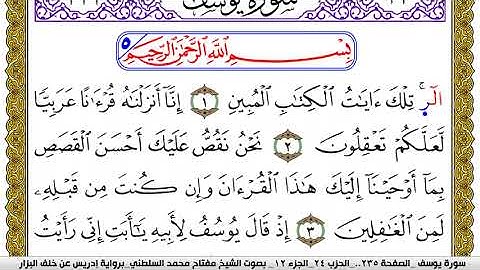 سورة يوسف
بِسْمِ اللَّهِ الرَّحْمَٰنِ الرَّحِيمِ
الٓر ۚ تِلْكَ ءَايَٰتُ الْكِتَٰبِ الْمُبِينِ ١ إِنَّا أَنزَلْنَٰهُ قُرْءَٰنًا عَرَبِيًّا
لَّعَلَّكُمْ تَعْقِلُونَ ٢ نَحْنُ نَقُصُّ عَلَيْكَ أَحْسَنَ الْقَصَصِ
بِمَا أَوْحَيْنَا إِلَيْكَ هَٰذَا الْقُرْءَانَ وَإِن كُنتَ مِن قَبْلِهِۦ
لَمِنَ الْغَٰفِلِينَ ٣ إِذْ قَالَ يُوسُفُ لِأَبِيهِ يَٰأَبَتِ إِنِّي رَأَيْتُ
سورة يوسف_ الصفحة ٢٣٥.. الحزب ٢٤_ الجزء ١٢_ بصوت الشيخ مفتاح محمد السلطني_برواية إدريس عن خلف البزار